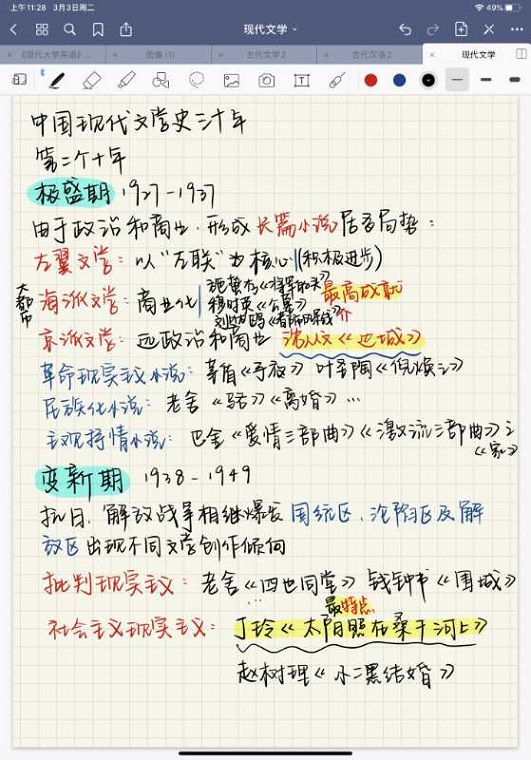 上午11:28 3月3日周二
49%
现代文学
《现代大学英语》...
图像 (1)
古代文学2
古代汉语2
现代文学
中国现代文学史三十年
第二个十年
极盛期 1927-1937
由于政治和商业，形成长篇小说居多局势：
左翼文学：以“左联”为核心 (积极进步)
大都市
海派文学：商业化
施蛰存《将军的头》
穆时英《公墓》
最高成就
京派文学：远政治和商业 沈从文《边城》
革命现实主义小说：茅盾《子夜》 叶圣陶《倪焕之》
民族化小说：老舍《骆》《离婚》…
主观抒情小说：巴金《爱情三部曲》《激流三部曲》之
《家》
变新期 1938-1949
抗日、解放战争相继爆发 国统区、沦陷区及解
放区出现不同文学创作倾向
批判现实主义：老舍《四世同堂》 钱钟书《围城》
最特点
社会主义现实主义：丁玲《太阳照在桑干河上》
赵树理《小二黑结婚》